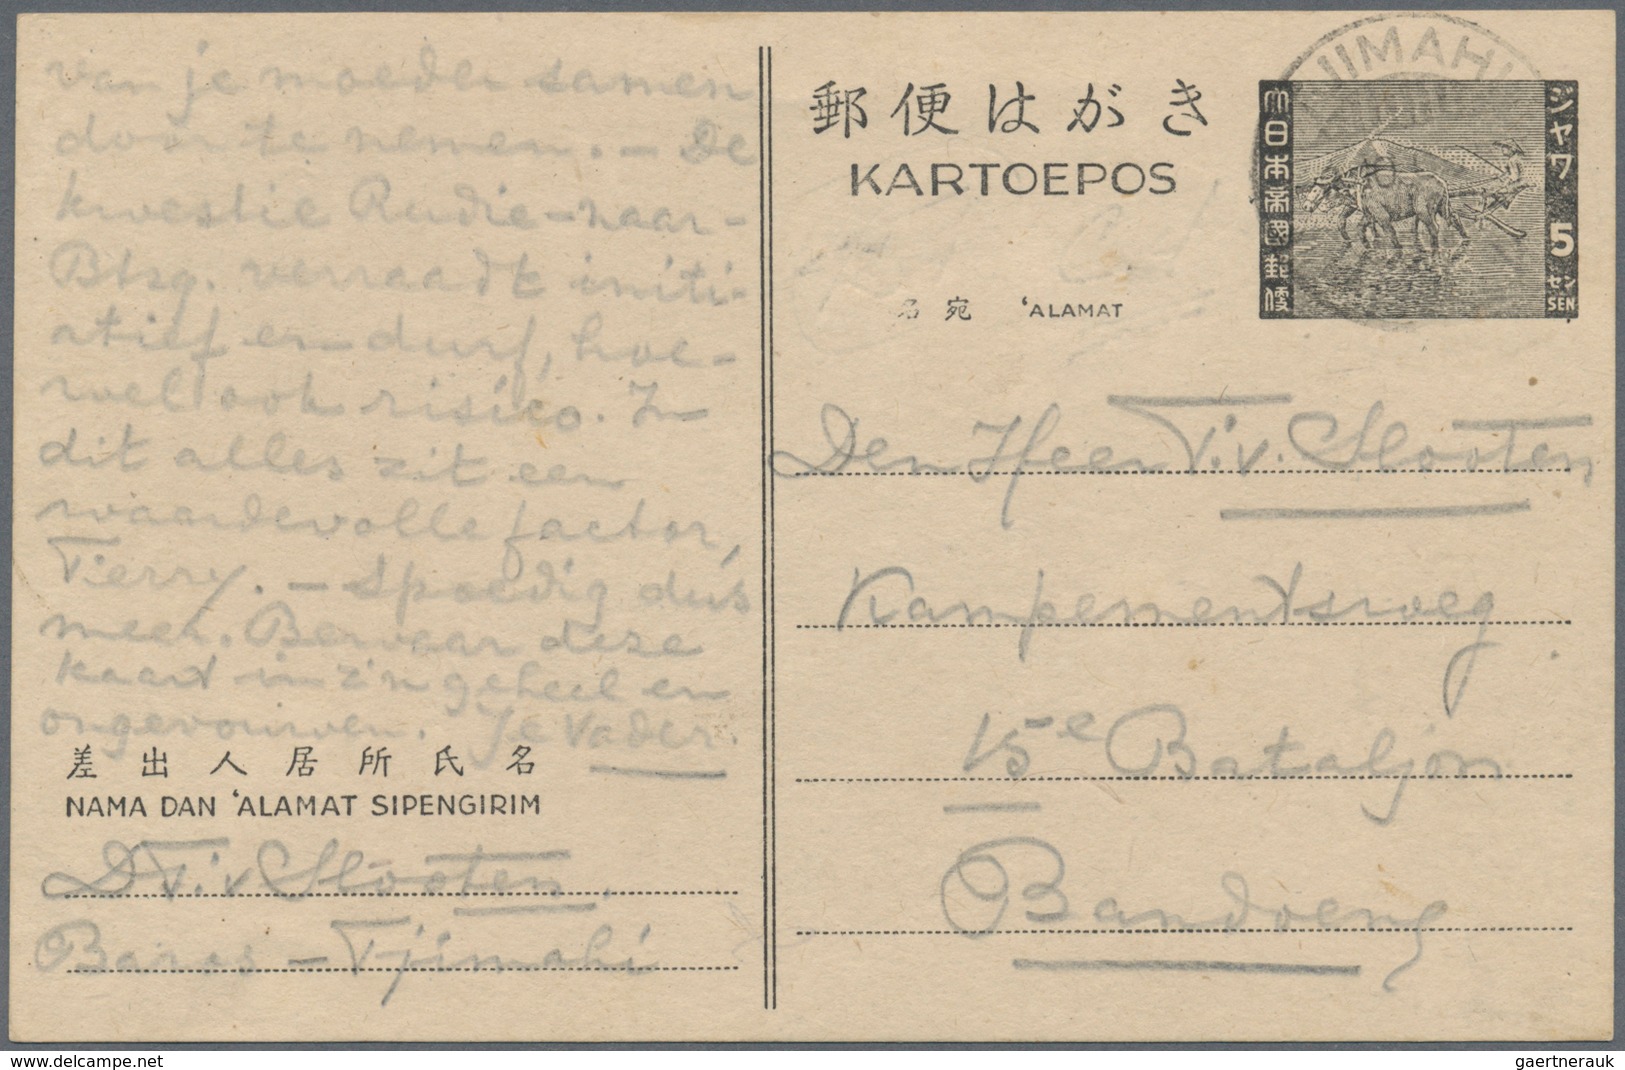 van je moeder samen
door te nemen. — De
kwestie Rudie-naar-
Btzg. verraadt initi-
atief en durf, hoe-
wel ook risico. In
dit alles zit een
waardevolle factor,
Tierry. — Spoedig dus
meer. Bewaar deze
kaart in z'n geheel en
ongevouwen. Je Vader.
差出人居所氏名
NAMA DAN 'ALAMAT SIPENGIRIM
D T. v Slooten.
Baros — Tjimahi
郵便はがき
KARTOEPOS
JIMAHI
大日本帝國郵便
ジャワ
5
セン
SEN
名宛 'ALAMAT
Den Heer T. v. Slooten
Kampementsweg
15e Bataljon
Bandoeng
www.delcampe.net
gaertnerauk